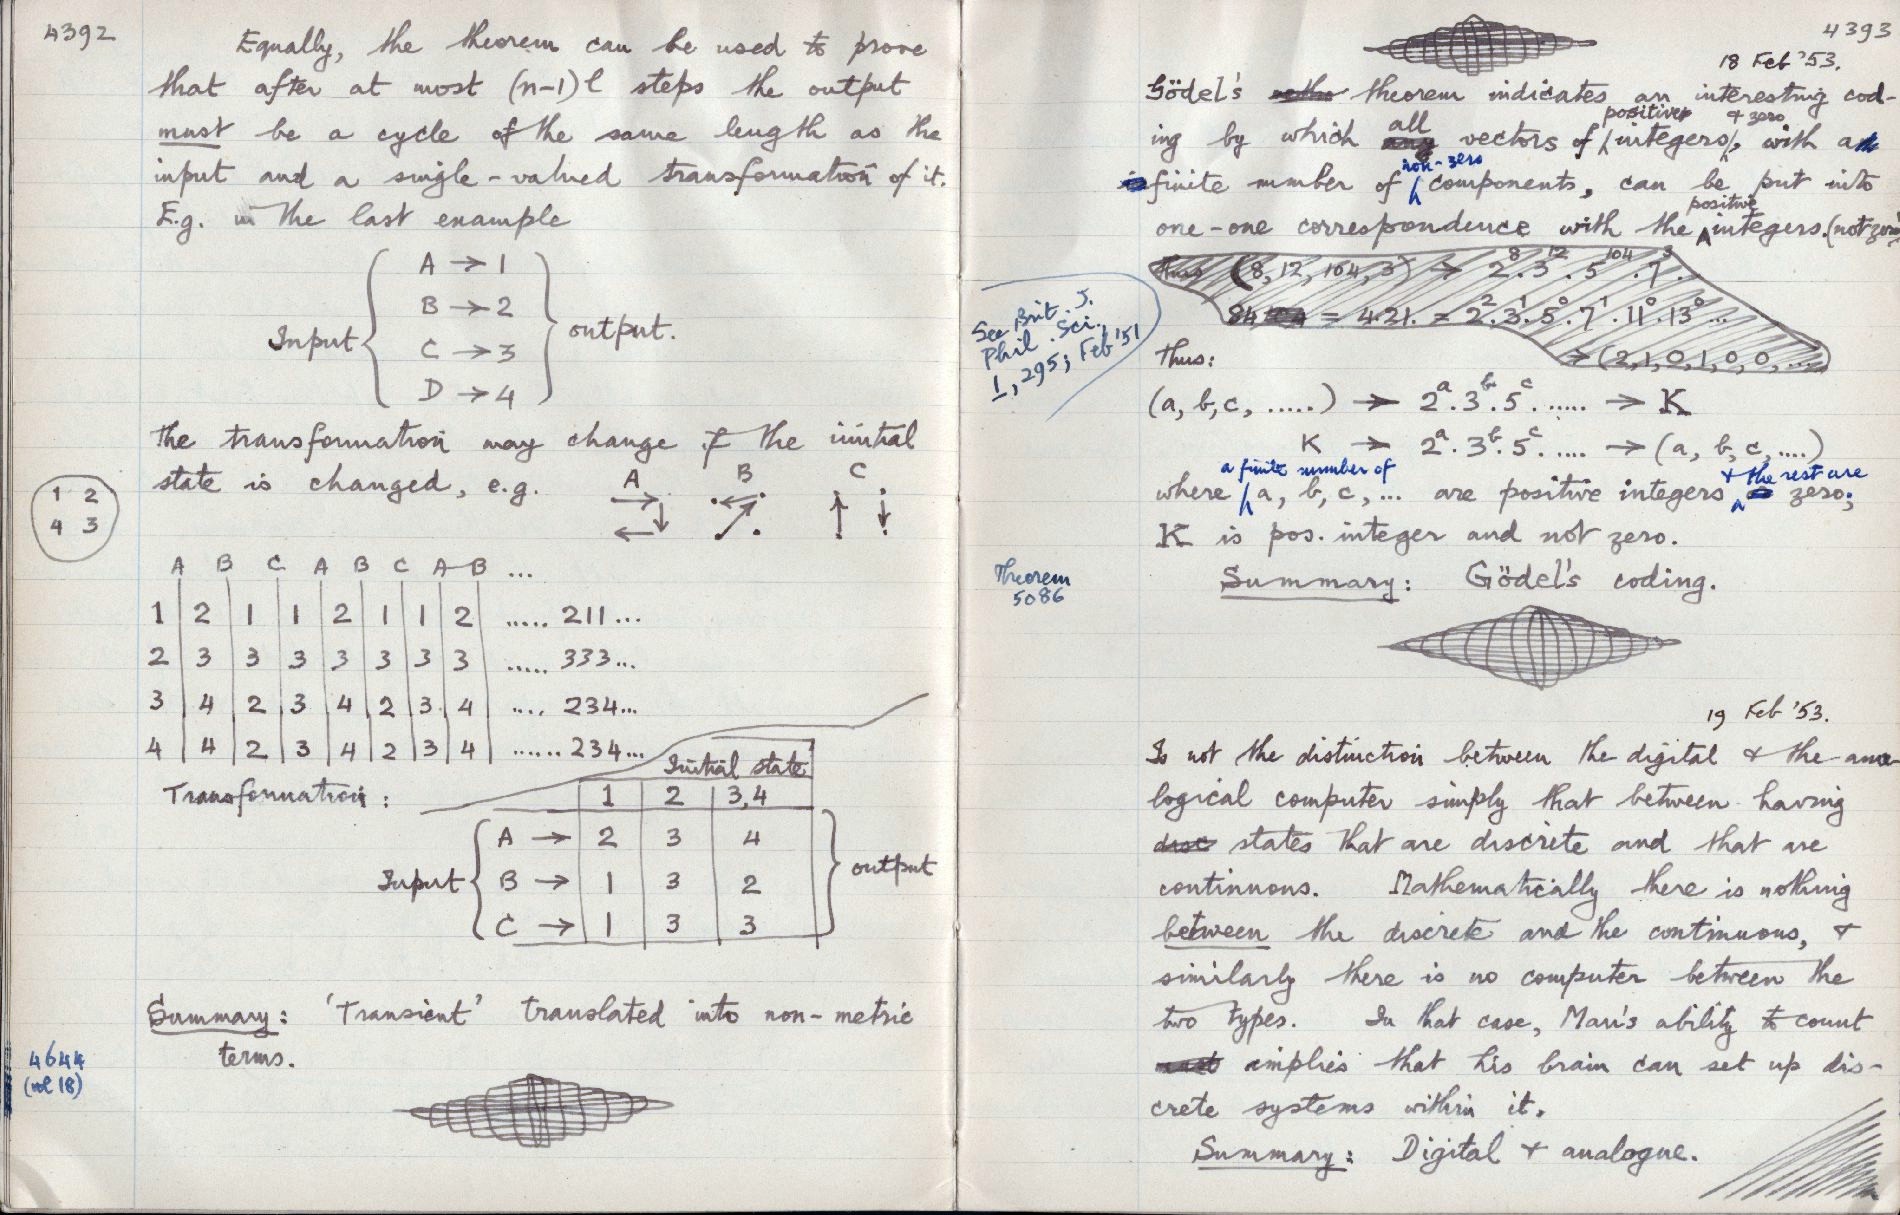 4392
Equally, the theorem can be used to prove
that after at most (n-1)l steps the output
must be a cycle of the same length as the
input and a single-valued transformation of it.
E.g. in the last example
A → 1
B → 2
Input output.
C → 3
D → 4
The transformation may change if the initial
state is changed, e.g.
A B C
1 2
4 3
A B C A B C A B ...
1 2 1 1 2 1 1 2 ..... 211...
2 3 3 3 3 3 3 3 ..... 333...
3 4 2 3 4 2 3 4 .... 234...
4 4 2 3 4 2 3 4 ...... 234...
Initial state
Transformation:
1 2 3,4
A → 2 3 4
Input B → 1 3 2 output
C → 1 3 3
Summary: 'Transient' translated into non-metric
terms.
4644
(vol 18)
4393
18 Feb '53.
Gödel's theorem indicates an interesting cod-
positive & zero
all
ing by which any vectors of integers, with a
non-zero
finite number of components, can be put into
positive
one-one correspondence with the integers. (not zero)
Thus (8, 12, 104, 3) → 2^8 . 3^12 . 5^104 . 7^3.
84 = 4.21. = 2^2. 3^1. 5^0. 7^1. 11^0. 13^0 ...
→ (2, 1, 0, 1, 0, 0, ...
See Brit. J.
Phil. Sci.,
1, 295; Feb '51
Thus:
(a, b, c, .....) → 2^a. 3^b. 5^c. ..... → K
K → 2^a. 3^b. 5^c. .... → (a, b, c, ....)
a finite number of & the rest are
where a, b, c, ... are positive integers zero;
K is pos. integer and not zero.
Theorem
5086
Summary: Gödel's coding.
19 Feb '53.
Is not the distinction between the digital & the ana-
logical computer simply that between having
disc states that are discrete and that are
continuous. Mathematically there is nothing
between the discrete and the continuous, &
similarly there is no computer between the
two types. In that case, Man's ability to count
implies that his brain can set up dis-
crete systems within it.
Summary: Digital & analogue.